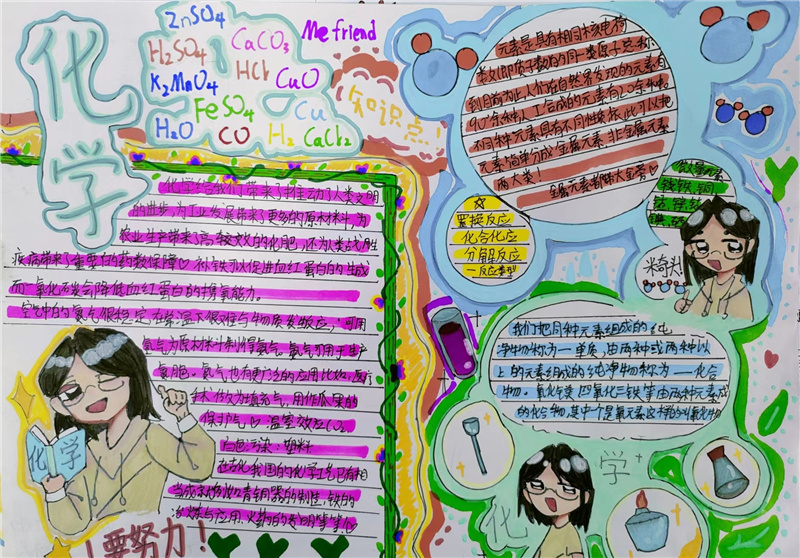 化学
ZnSO4
H2SO4
CaCO3
Me friend
K2MnO4
HCl
CuO
FeSO4
Cu
H2O
CO
H2
CaCl2
知识点!
化学给我们带来了推动了人类文明
的进步,为工业发展带来了更多的原材料,为
农业生产带来了高较效的化肥,还为人类战胜
疾病带来了重要的药物保障♡补铁可以促进血红蛋白的生成
而一氧化碳会降低血红蛋白的携氧能力。
空气中的氮气很稳定,在常温下很难与物质发生反应,可用
氮气为原材料制得氨气。氨气可用于生产
氮肥。氮气也有更广泛的应用比如,医疗
技术,做为填充气,用作瓜果的
保护气♡温室效应CO2
白色污染:塑料
在古代我国的化学工艺已有相
当成就例如青铜器的制造,铁的
冶炼与应用,火药的发明等等
化学
!要努力!
元素是具有相同核电荷
数(即质子数)的同一类原子总称,
到目前为止,人们在自然界发现的元素有
90余种,人工合成的元素有20余种。
不同种元素具有不同性质,据此可以把
元素简单分成金属元素,非金属元素
两大类!
金属元素都带金旁♡
☆
置换反应
化合反应
分解反应
—反应类型
微量元素
铁,钴,铜
米奇头
我们把同种元素组成的纯
净物称为—单质,由两种或两种以
上的元素组成的纯净物称为——化合
物。氧化镁,四氧化三铁等由两种元素组成
的化合物,其中一个是氧元素这样的叫氧化物
化
学